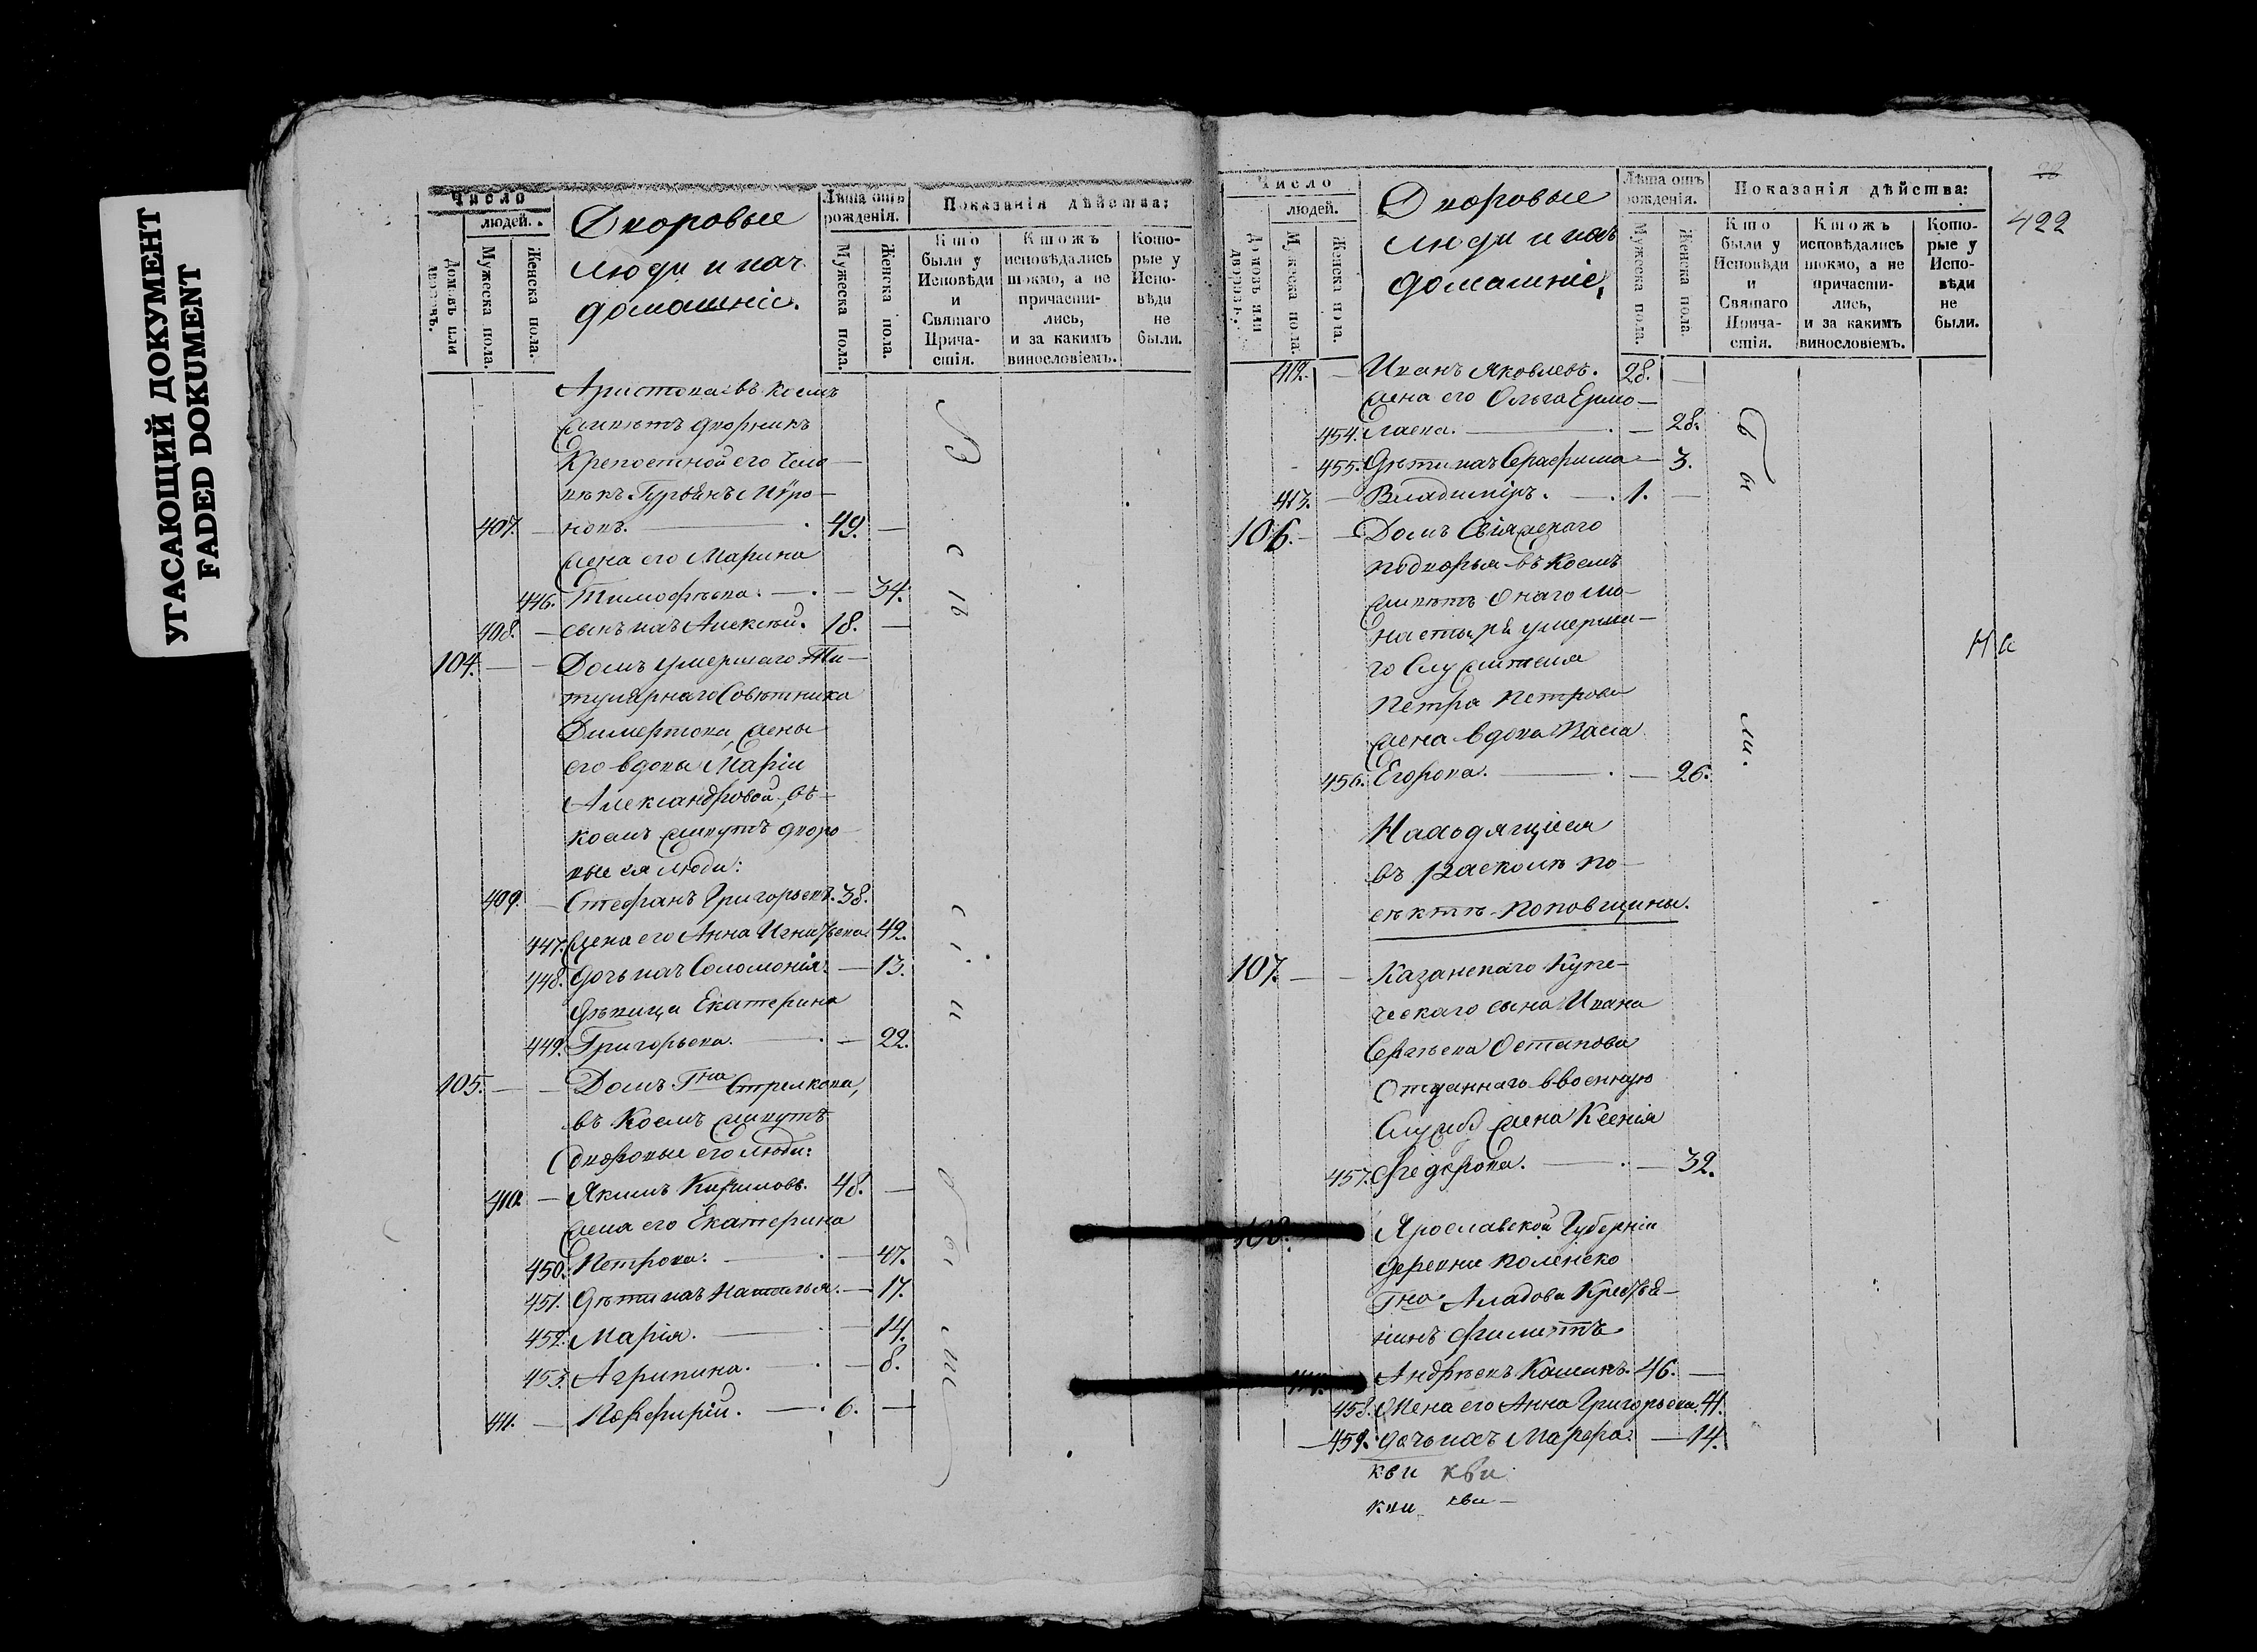 УГАСАЮЩИЙ ДОКУМЕНТ
FADED DOKUMENT
Число
людей.
Домовъ или дворовъ.
Мужеска пола.
Женска пола.
Дворовые
люди и ихъ
домашніе.
Лѣта отъ рожденія.
Мужеска пола.
Женска пола.
Показанія дѣйства:
Кто были у Исповѣди и Святаго Причастія.
Ктожъ исповѣдались токмо, а не причастились, и за какимъ винословіемъ.
Которые у Исповѣди не были.
въ коемъ
живетъ дворникъ
Крепостной его Чело-
вѣкъ
407. — новъ. — 49. —
жена его Марина
446. Тимофѣева. — 34.
408. — сынъ ихъ Алексѣй. 18. —
104. — — Домъ умершаго Ти-
тулярнаго Совѣтника
жены
его вдовы Маріи
Александровой, въ
коемъ живутъ дворо-
вые ея люди:
409. — Стефанъ Григорьевъ. 38.
447. жена его Анна Игнатьева 42.
448. дочь ихъ Соломонія. — 13.
дѣвица Екатерина
449. Григорьева. — 22.
105. — — Домъ Гна Стрелкова,
въ коемъ живутъ
дворовые его люди:
410. — Якимъ Кириловъ. 48. —
жена его Екатерина
450. Петрова. — 47.
451. дѣти ихъ Наталья. — 17.
452. Марія. — 14.
453. Агрипина. — 8.
411. — Порфирій. — 6. —
Число
людей.
Домовъ или дворовъ.
Мужеска пола.
Женска пола.
Дворовые
люди и ихъ
домашніе,
Лѣта отъ рожденія.
Мужеска пола.
Женска пола.
Показанія дѣйства:
Кто были у Исповѣди и Святаго Причастія.
Ктожъ исповѣдались токмо, а не причастились, и за какимъ винословіемъ.
Которые у Исповѣди не были.
422
412. — Иванъ Яковлевъ. 28. —
жена его Ольга Ермо-
454. лаева. — 28.
455. дѣти ихъ Серафима — 3.
413. — Владимиръ. — 1. —
106. — — Домъ Свіяжскаго
подворья въ коемъ
живетъ онаго мо-
настыря умерша-
го Служителя
Петра Петрова
жена вдова
456. Егорова. — 26.
Находящіеся
въ расколѣ по
сѣктѣ поповщины.
107. — — Казанскаго Купе-
ческаго сына Ивана
Сергѣева Остапова
отданнаго въ военную
Службу жена Ксенія
457. Федорова. — 32.
108. Ярославской Губерніи
деревни
Гна Кресть-
янинъ Филиппъ
Андрѣевъ 46. —
458. Жена его Анна Григорьева. 41.
459. дочь ихъ Марфа. — 14.
кви кви
кви кви
бы
ли.
Не